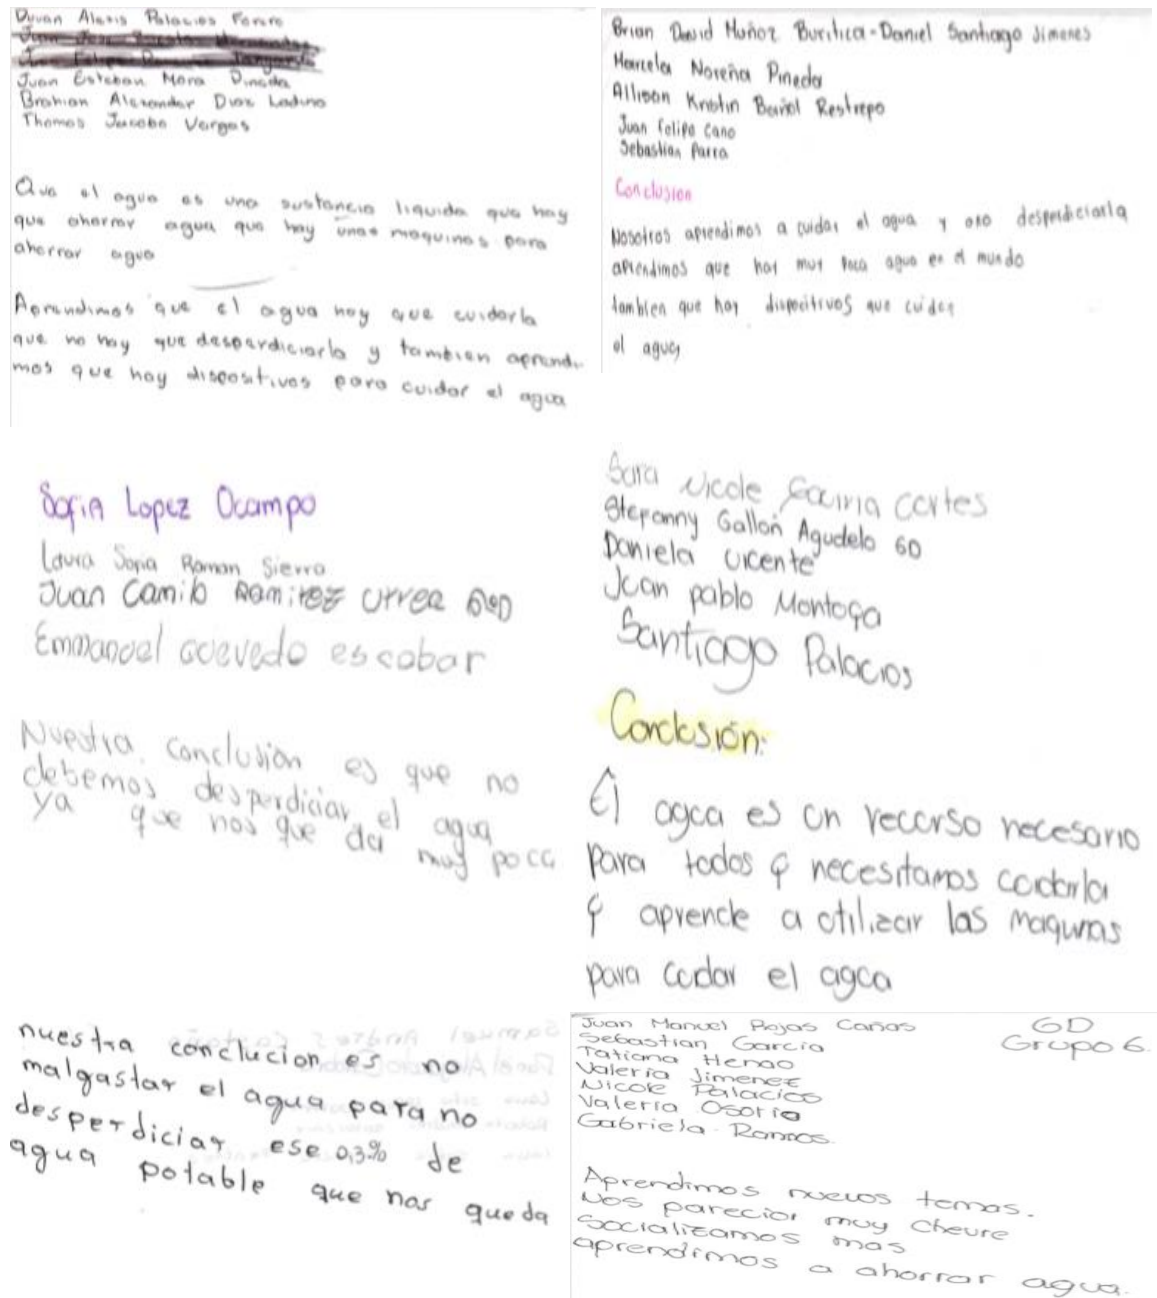 Duvan Alexis Palacios Forero
Juan Esteban Mora Pineda
Brahian Alexander Diaz Ladino
Thomas Jacobo Vargas
Que el agua es una sustancia liquida que hay
que ahorrar agua que hay unas maquinas para
ahorrar agua
Aprendimos que el agua hay que cuidarla
que no hay que desperdiciarla y tambien aprendi
mos que hay dispositivos para cuidar el agua
Brian David Muñoz Buritica-Daniel Santiago Jimenes
Marcela Noreña Pineda
Allison Kristin Bañol Restrepo
Juan Felipe Cano
Sebastian Parra
Conclusion
Nosotros aprendimos a cuidar el agua y ano desperdiciarla
aprendimos que hay muy poca agua en el mundo
tambien que hay dispositivos que cuidan
el agua
Sofia Lopez Ocampo
Laura Sofia Roman Sierra
Juan Camilo Ramirez Urrea 6D
Emmanuel acevedo escobar
Nuestra conclusión es que no
debemos desperdiciar el agua
ya que nos que da muy poca
Sara Nicole Gaviria cortes
Stefanny Gallon Agudelo 6D
Daniela vicente
Juan pablo Montoya
Santiago Palacios
Conclusión:
El agua es un recurso necesario
para todos y necesitamos cuidarla
y aprende a utilizar las maquinas
para cuidar el agua
nuestra conclucion es no
malgastar el agua para no
desperdiciar ese 0,3% de
agua potable que nos queda
Juan Manuel Rojas Cañas 6D
Sebastian Garcia Grupo 6.
Tatiana Henao
Valeria Jimenez
Nicole Palacios
Valeria Osorio
Gabriela Ramos.
Aprendimos nuevos temas.
Nos parecior muy chevre
socializamos mas
aprendimos a ahorrar agua.